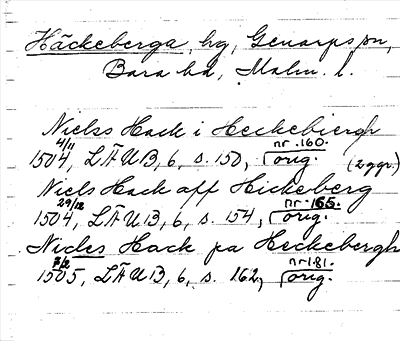 Häckeberga, hg, Genarps sn,
Bara hd, Malm. l.
Nielss Hack i Heckebiergh
4/11 1504, LÄUB, 6, s. 150, nr. 160. orig. (2 ggr.)
Niels Hack aff Hickeberg
29/12 1504, LÄUB, 6, s. 154, nr. 165. orig.
Nieles Hack pa Heckebergh
7/2 1505, LÄUB, 6, s. 162, nr 181. orig.